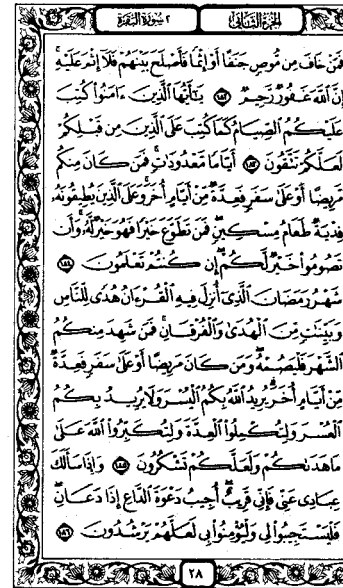 الجزء الثاني
٢ سورة البقرة
فَمَنْ خَافَ مِن مُّوصٍ جَنَفًا أَوْ إِثْمًا فَأَصْلَحَ بَيْنَهُمْ فَلَا إِثْمَ عَلَيْهِ
إِنَّ اللَّهَ غَفُورٌ رَّحِيمٌ ١٨٢ يَٰٓأَيُّهَا الَّذِينَ ءَامَنُوا كُتِبَ
عَلَيْكُمُ الصِّيَامُ كَمَا كُتِبَ عَلَى الَّذِينَ مِن قَبْلِكُمْ
لَعَلَّكُمْ تَتَّقُونَ ١٨٣ أَيَّامًا مَّعْدُودَٰتٍ فَمَن كَانَ مِنكُم
مَّرِيضًا أَوْ عَلَىٰ سَفَرٍ فَعِدَّةٌ مِّنْ أَيَّامٍ أُخَرَ وَعَلَى الَّذِينَ يُطِيقُونَهُ
فِدْيَةٌ طَعَامُ مِسْكِينٍ فَمَن تَطَوَّعَ خَيْرًا فَهُوَ خَيْرٌ لَّهُ وَأَن
تَصُومُوا خَيْرٌ لَّكُمْ إِن كُنتُمْ تَعْلَمُونَ ١٨٤
شَهْرُ رَمَضَانَ الَّذِي أُنزِلَ فِيهِ الْقُرْءَانُ هُدًى لِّلنَّاسِ
وَبَيِّنَٰتٍ مِّنَ الْهُدَىٰ وَالْفُرْقَانِ فَمَن شَهِدَ مِنكُمُ
الشَّهْرَ فَلْيَصُمْهُ وَمَن كَانَ مَرِيضًا أَوْ عَلَىٰ سَفَرٍ فَعِدَّةٌ
مِّنْ أَيَّامٍ أُخَرَ يُرِيدُ اللَّهُ بِكُمُ الْيُسْرَ وَلَا يُرِيدُ بِكُمُ
الْعُسْرَ وَلِتُكْمِلُوا الْعِدَّةَ وَلِتُكَبِّرُوا اللَّهَ عَلَىٰ
مَا هَدَىٰكُمْ وَلَعَلَّكُمْ تَشْكُرُونَ ١٨٥ وَإِذَا سَأَلَكَ
عِبَادِي عَنِّي فَإِنِّي قَرِيبٌ أُجِيبُ دَعْوَةَ الدَّاعِ إِذَا دَعَانِ
فَلْيَسْتَجِيبُوا لِي وَلْيُؤْمِنُوا بِي لَعَلَّهُمْ يَرْشُدُونَ ١٨٦
٢٨